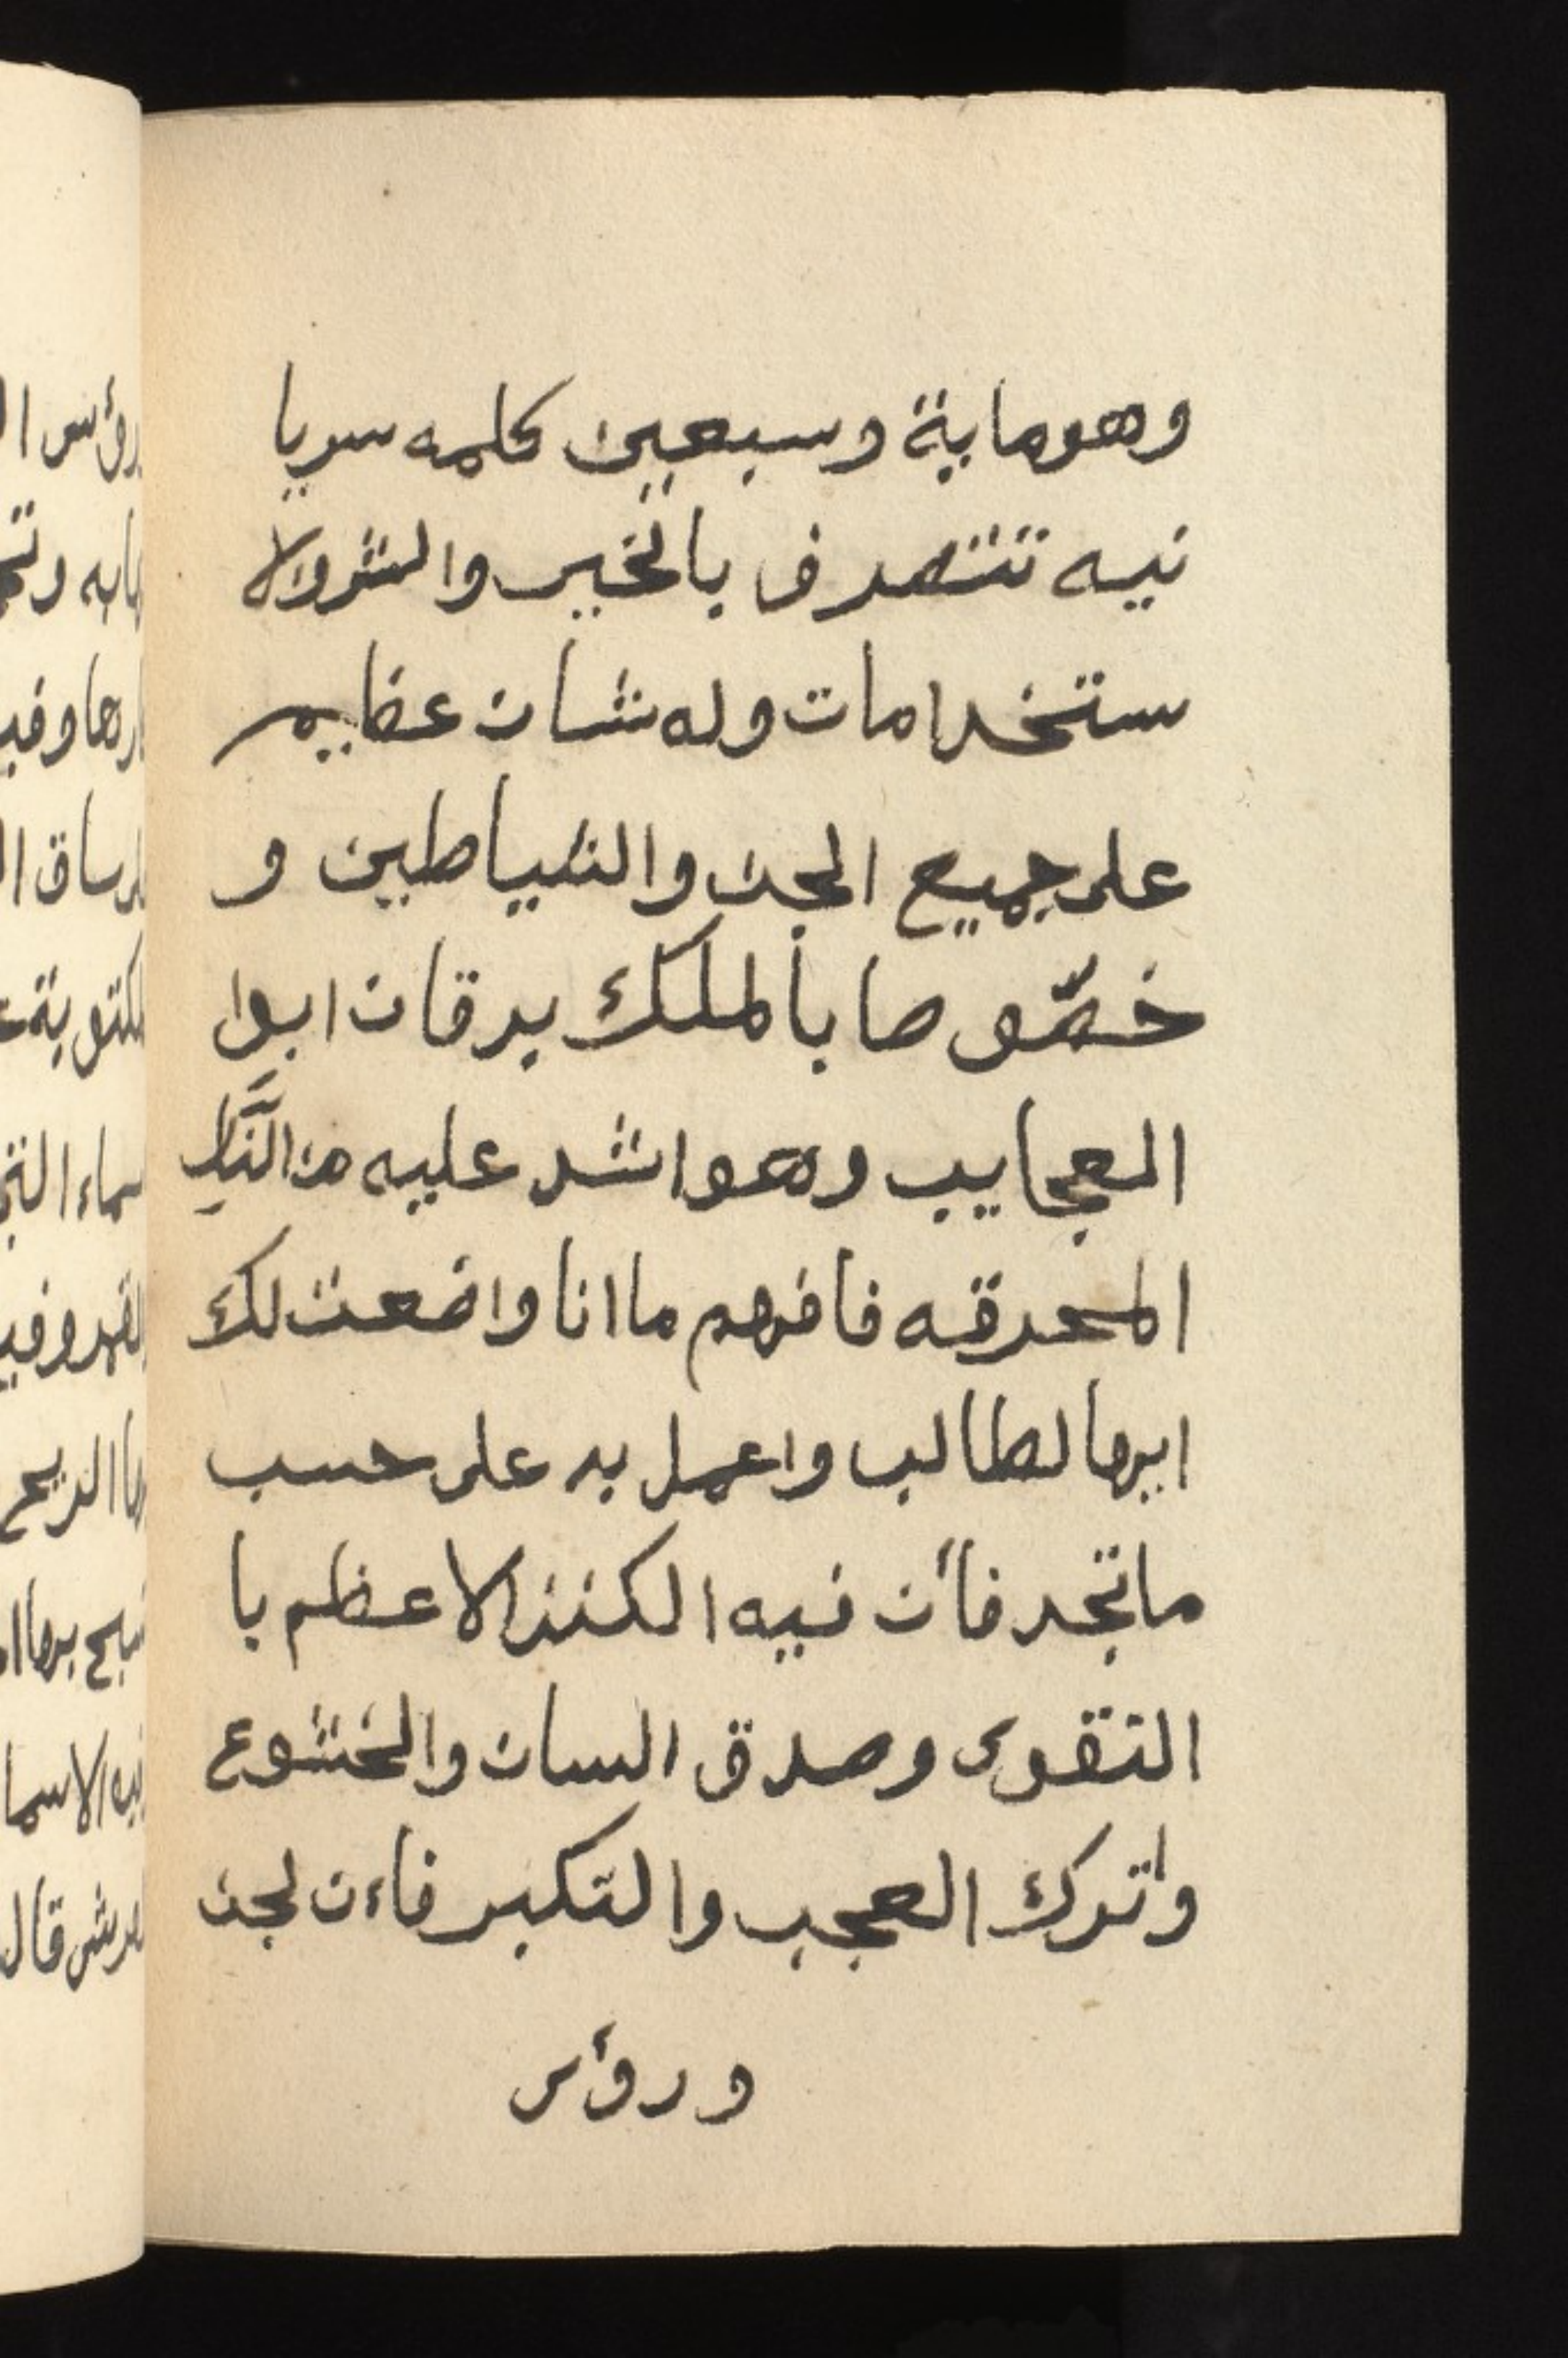 وهو ماية وسبعين كلمه سريا
نيه تتصرف بالخير والشر والا
ستخدامات وله شان عظيم
على جميع الجن والشياطين و
خصّوصا بالملك برقان ابوا
العجايب وهو اشد عليه من النَّار
المحرقه فافهم ما انا واضعت لك
ايها لطالب واعمل به على حسب
ما تجد فأن فيه الكنز الاعظم با
التقوى وصدق السان والخشوع
واترك العجب والتكبر فاءن لجن
ورؤس